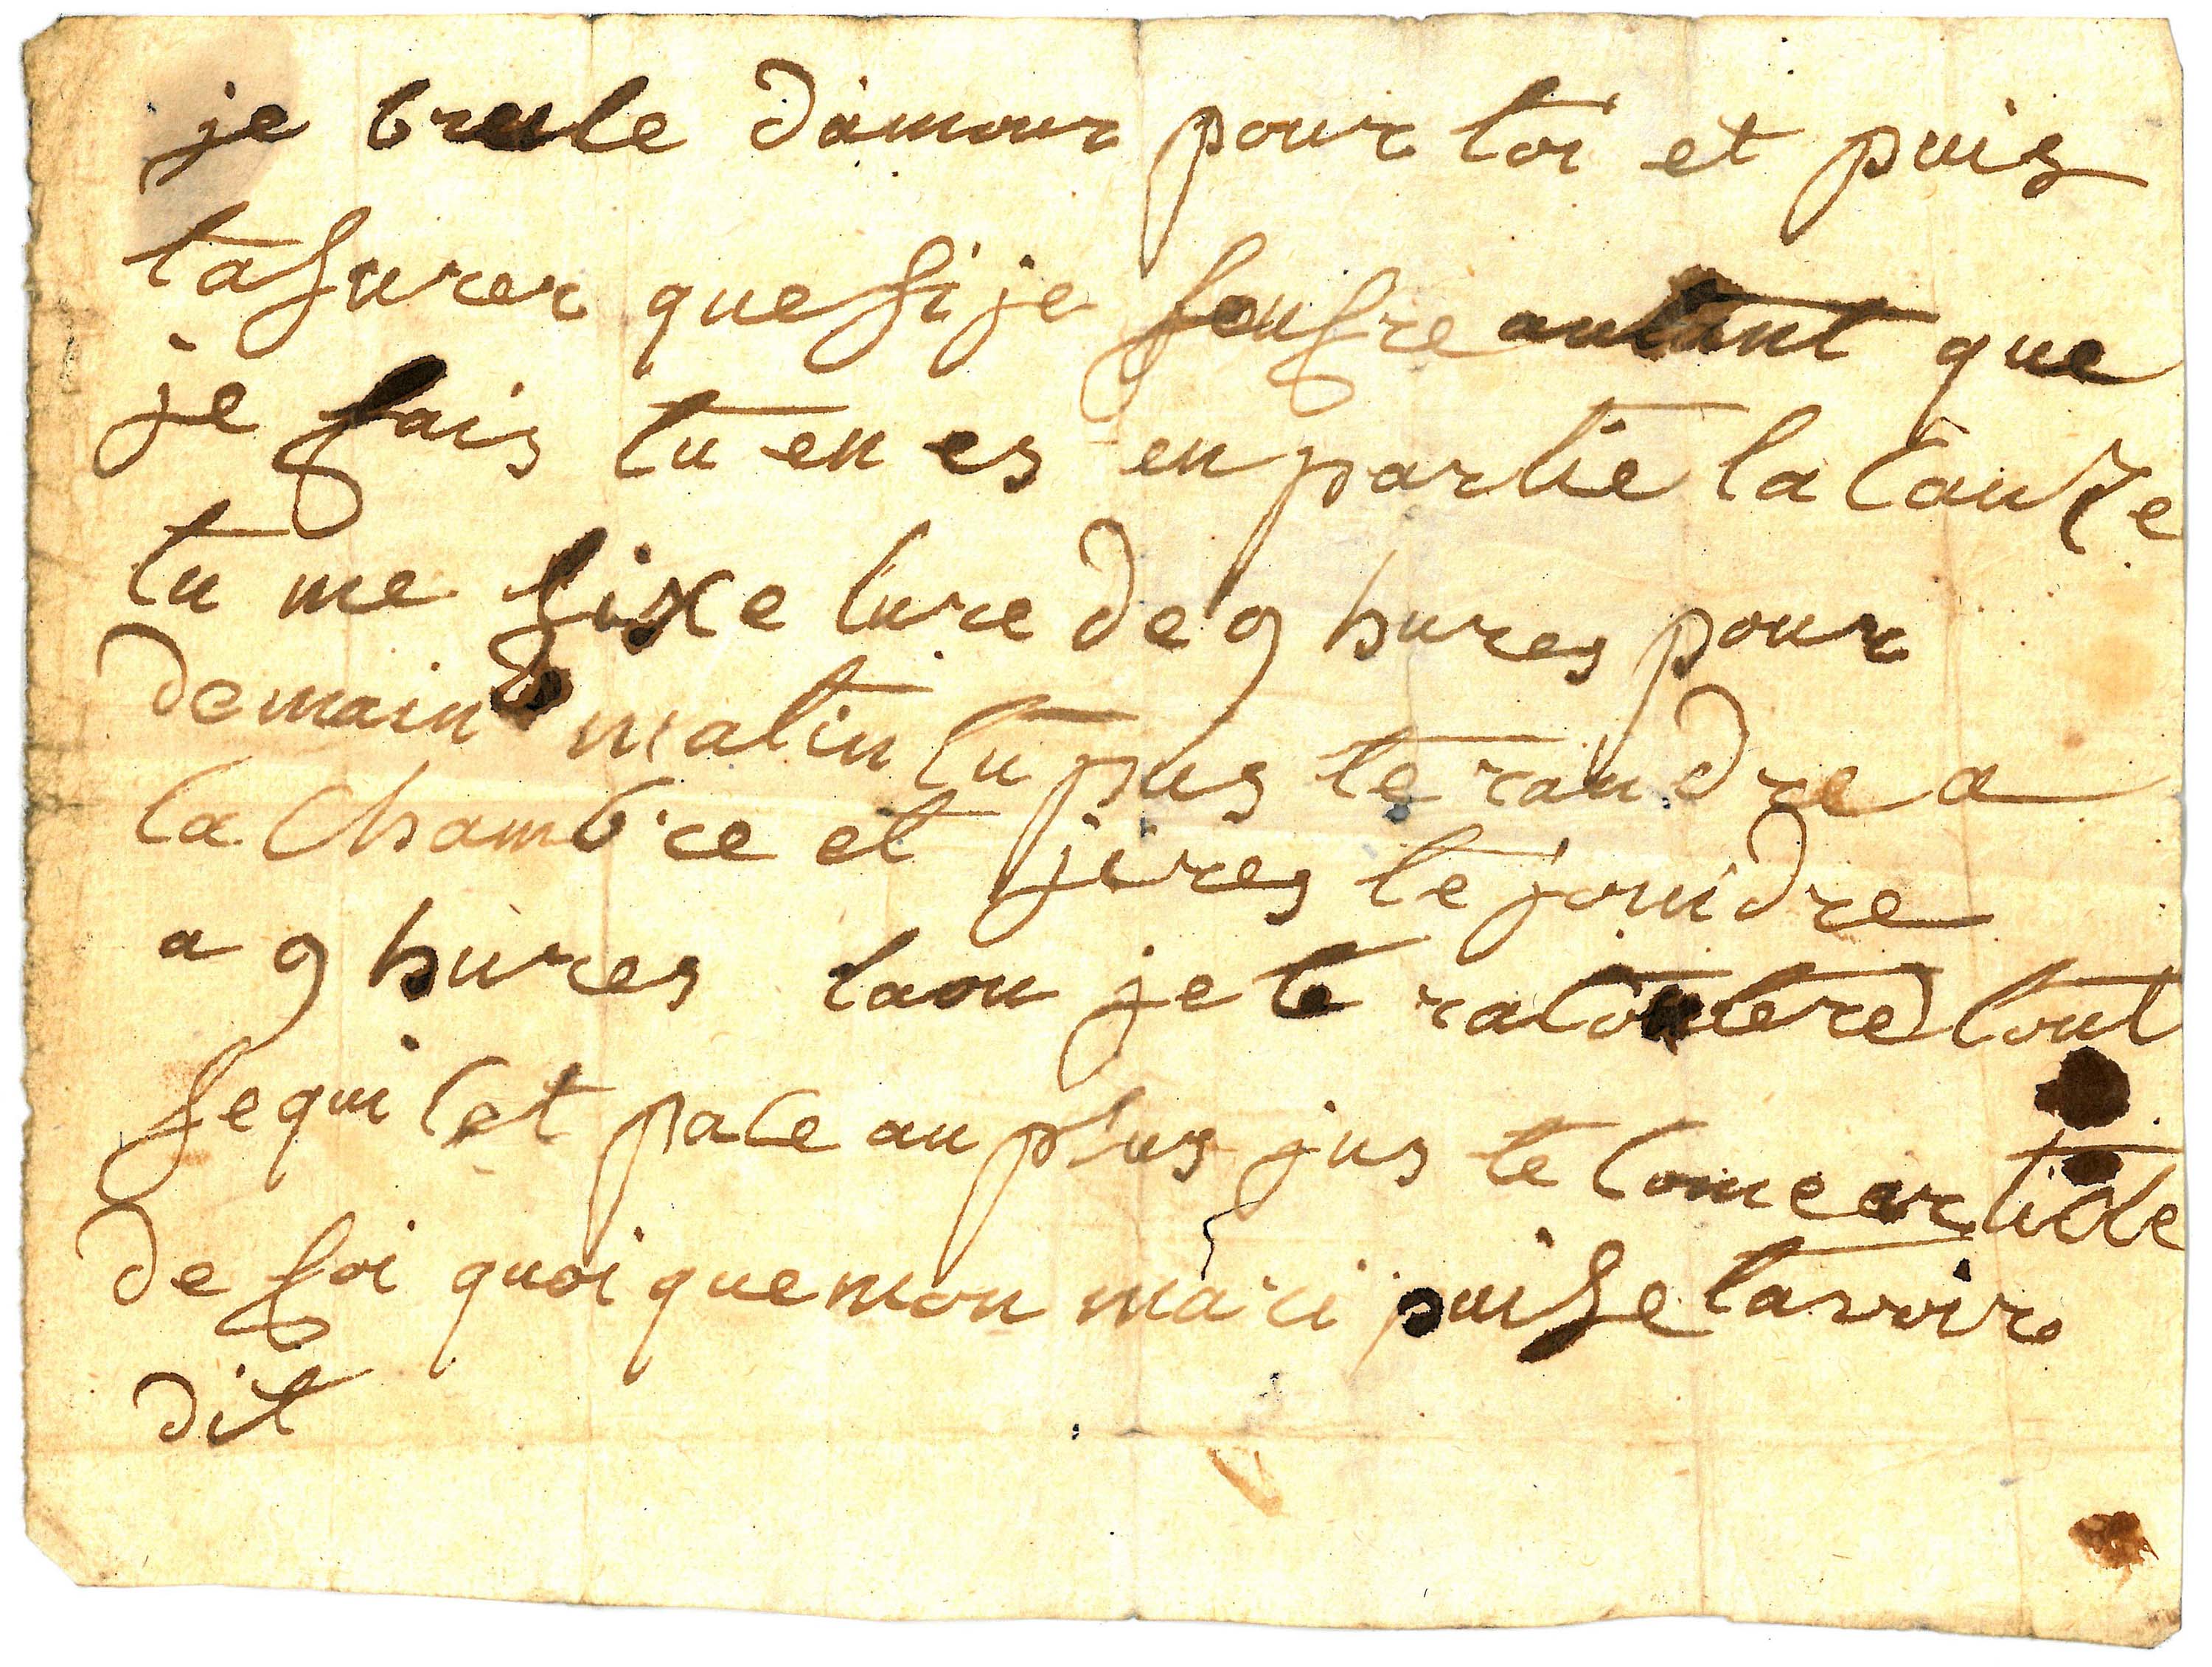 je brule d'amour pour toi et puis
tasurer que si je soufre autant que
je fais tu en es en partie la cause
tu me fixe lure de 9 hures pour
demain matin tu pus te randre a
la chambre et jires te joindre
a 9 hures laou je te raconteré tout
se qui cet pace au plus jus te come article
de foi quoi que mon mari puise tavoir
dit